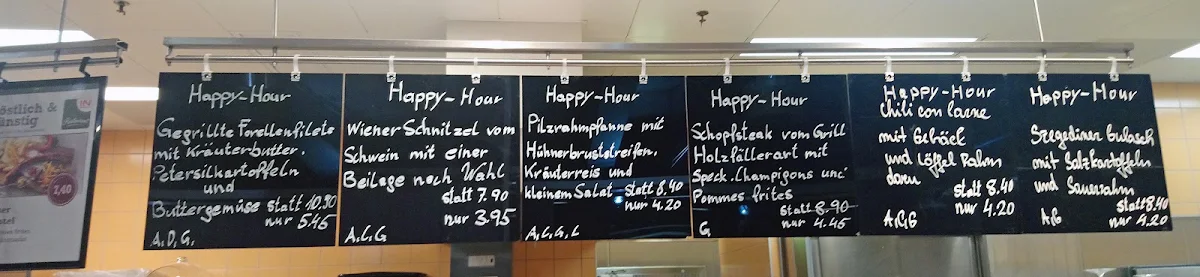 östlich &
ünstig
IN
7,40
Happy-Hour
Gegrillte Forellenfilets
mit Kräuterbutter.
Petersilkartoffeln
und
Buttergemüse statt 10.90
nur 5.45
A,D,G,
Happy-Hour
Wiener Schnitzel vom
Schwein mit einer
Beilage nach Wahl
statt 7.90
nur 3.95
A,C,G
Happy-Hour
Pilzrahmpfanne mit
Hühnerbruststreifen,
Kräuterreis und
kleinem Salat statt 8.40
nur 4.20
A,C,G,L
Happy-Hour
Schopfsteak vom Grill
Holzfällerart mit
Speck.Champigons und
Pommes frites
statt 8.90
nur 4.45
G
Happy-Hour
Chili con carne
mit Gebäck
und Löffel Rahm
darin
statt 8.40
nur 4.20
A,G
Happy-Hour
Szegediner Gulasch
mit Salzkartoffeln
und Sauerrahm
statt 8.40
nur 4.20
A,G